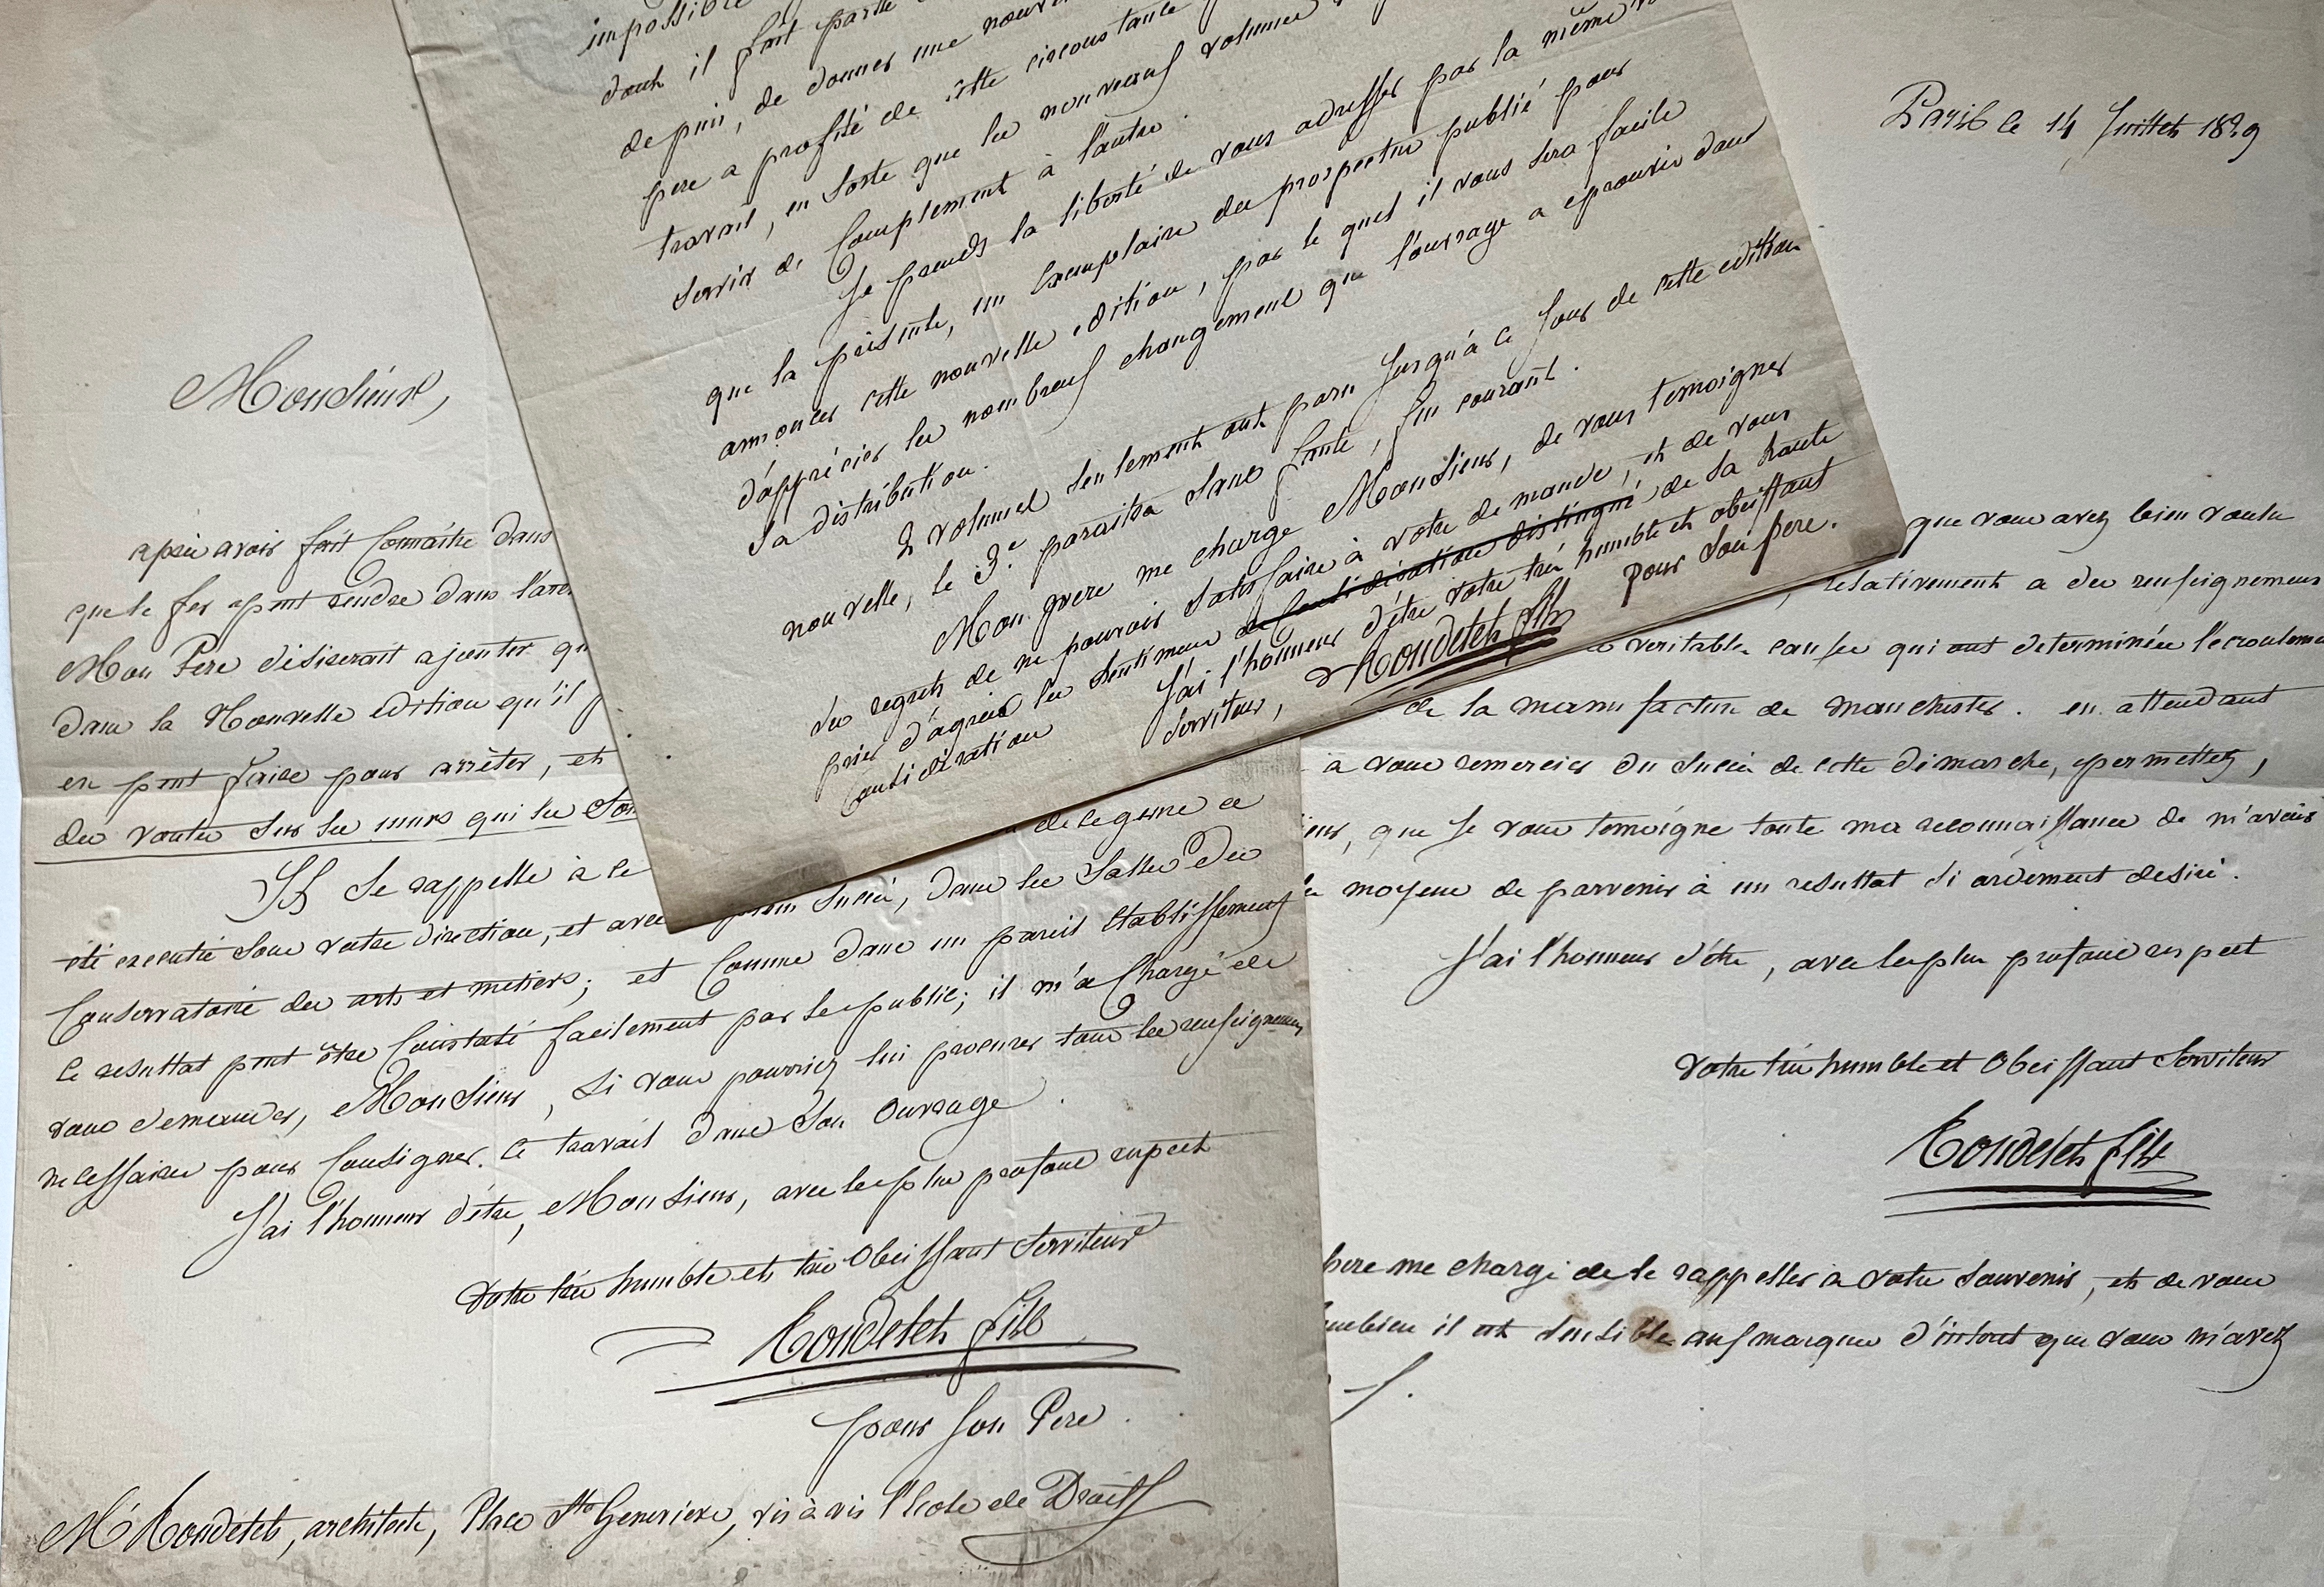 impossible
dont il fait partie
depuis, de donner une nouvelle
pere a profité de cette circonstance
travail, en sorte que les nouveaux volumes
servir de Complement à l'autre.
Je prends la liberté de vous adresser par la même
que la présente, un Exemplaire du prospectus publié pour
annoncer cette nouvelle edition, par le quel il vous sera facile
d'apprécier les nombreux changements que l'ouvrage a eprouvés dans
sa distribution.
2 volumes seulement ont paru Jusqu'à ce Jour de cette edition
nouvelle, le 3.e paraitra sans faute, fin courant.
Mon pere me charge Monsieur, de vous temoigner
ses regrets de ne pouvoir satisfaire à votre demande, et de vous
prier d'agréer les sentimens de Considération distingué de sa haute
Considération
J'ai l'honneur d'être votre très humble et obeissant
Serviteur,
Rondelet fils
pour son pere.
Monsieur,
après avois fait Connaitre dans
que le fer peut rendre dans l'art
Mon Pere désirerait ajouter qu
dans la Nouvelle edition qu'il
en peut faire pour arrêter, et
des voutes sur les murs qui les Sou
Il Se rappelle à ce
de ce genre a
été executé sous votre direction, et avec plein Succès, dans les Salles Du
Conservatoire des arts et metiers; et Comme dans un pareil Etablissement
le resultat peut être Constaté facilement par le public; il m'a Chargé de
vous demander, Monsieur, Si vous pourriez lui procurer tous les renseignemens
necessaires pour Consigner ce travail dans Son Ouvrage.
J'ai l'honneur d'être, Monsieur, avec le plus profond respect
Votre très humble et très Obeissant Serviteur
Rondelet fils
pour son Pere.
Mr Rondelet, architecte, Place Ste Genevieve, vis à vis l'Ecole de Droit
Paris le 14 Juillet 1829
que vous avez bien voulu
, relativement a des renseignemens
veritables causes qui ont determinées l'ecroulement
de la manufacture de Manchester. en attendant
à vous remercier du Succès de cette démarche, permettez,
que Je vous temoigne toute ma reconnaissance de m'avoir
moyens de parvenir à un resultat si ardement desiré.
J'ai l'honneur d'être, avec le plus profond respect
Votre très humble et Obeissant Serviteur
Rondelet fils
pere me charge de le rappeller à votre souvenir, et de vous
combien il est sensible aux marques d'intérêt que vous m'avez